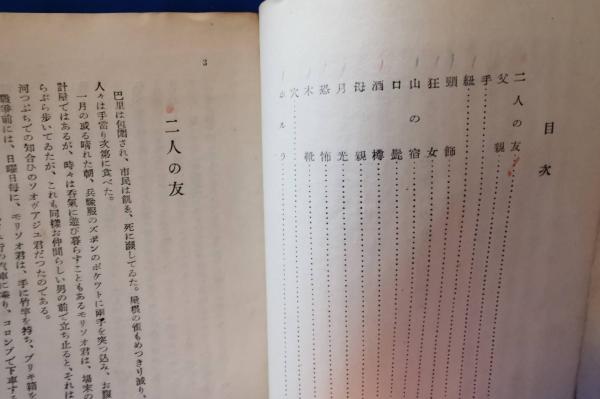 目次
二人の友
父親
手
紐
頸飾
狂女
山の宿
口髭
酒樽
母親
月光
恐怖
木靴
穴
オルラ
3
二人の友
巴里は包囲され、市民は飢ゑ、死に瀕してゐた。屋根の雀もめつきり減り、
人々は手當り次第に食べた。
一月の或る晴れた朝、兵隊服のズボンのポケツトに兩手を突つ込み、お腹
計屋ではあるが、時々は呑氣に遊び暮らすこともあるモリソオ君は、場末の
らぶら歩いてゐたが、これも同様お仲間らしい男の前で立ち止ると、それは
河つぷちでの知合ひのソオヴアジユ君だつたのである。
戰爭前には、日曜日毎に、モリソオ君は、手に竹竿を持ち、ブリキ箱を
汽車に乗り、コロンブで下車する